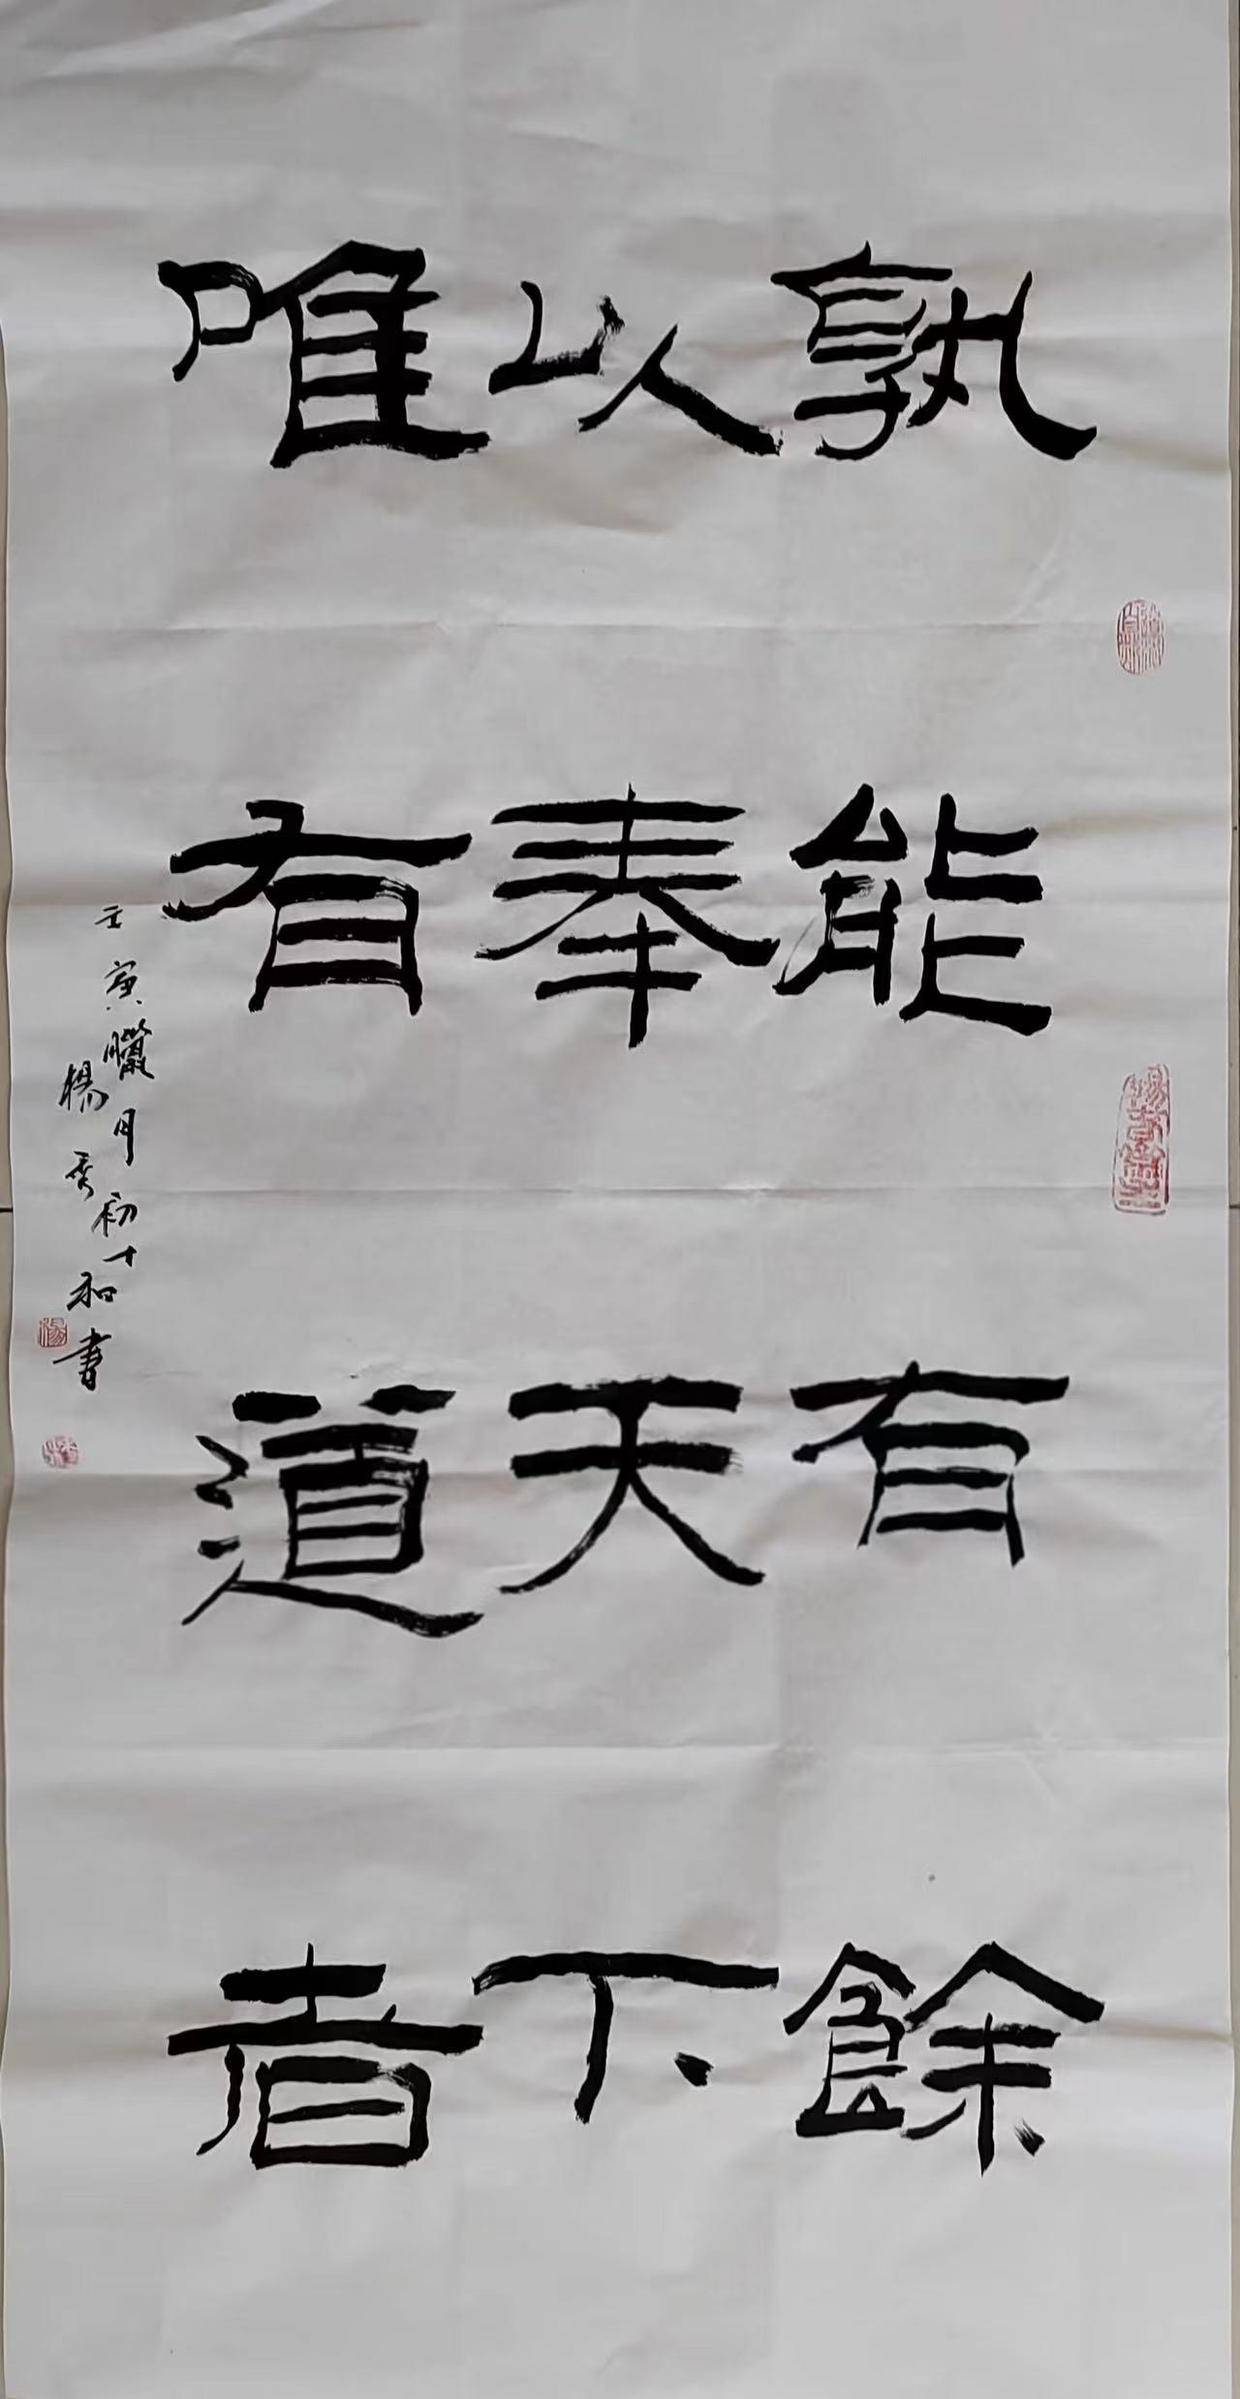 孰能有餘
以奉天下
唯有道者
壬寅臘月初十
楊秀和書